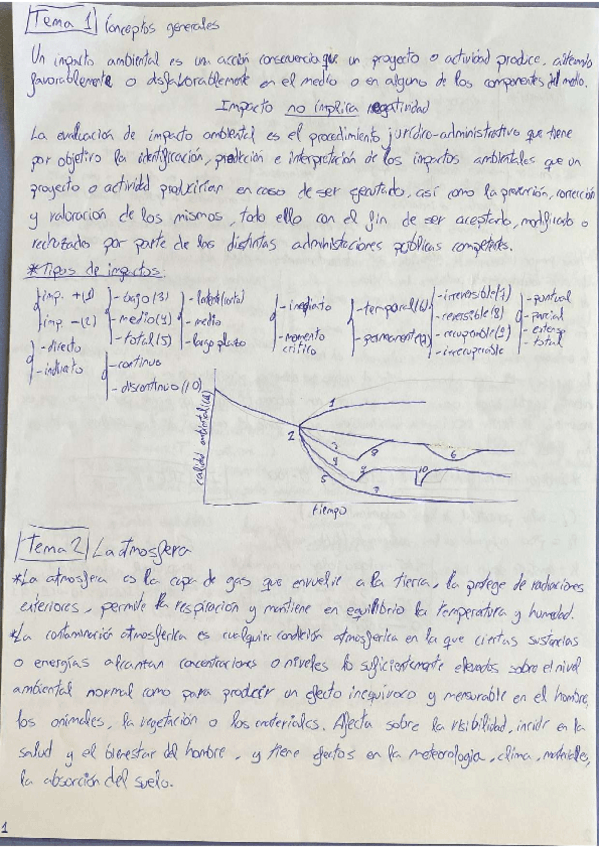 Tema 1 Conceptos generales
Un impacto ambiental es un acción consecuencia que un proyecto o actividad produce, alterando
favorablemente o disfavorablemente en el medio o en alguno de los componentes del medio.
Impacto no implica negatividad
La evaluación de impacto ambiental es el procedimiento jurídico-administrativo que tiene
por objetivo la identificación, predicción e interpretación de los impactos ambientales que un
proyecto o actividad producirían en caso de ser ejecutado, así como la prevención, corrección
y valoración de los mismos, todo ello con el fin de ser aceptado, modificado o
rechazado por parte de las distintas administraciones públicas competentes.
*Tipos de impactos:
imp. +(1) - bajo(3) - (corto) - inmediato - temporal(6) - irreversible(7) - puntual
imp. -(2) - medio(4) - medio - momento - permanente - reversible(8) - parcial
- total(5) - largo plazo critico - recuperable(9) - extenso
- directo - continuo - irrecuperable - total
- indirecto - discontinuo(10)
calidad ambiental
1
2
3
8
4
6
5
9
10
7
tiempo
Tema 2 La atmosfera
*La atmosfera es la capa de gas que envuelve a la tierra, la protege de radiaciones
exteriores, permite la respiración y mantiene en equilibrio la temperatura y humedad.
*La contaminación atmosferica es cualquier condición atmosferica en la que ciertas sustancias
o energías alcanzan concentraciones o niveles lo suficientemente elevados sobre el nivel
ambiental normal como para producir un efecto inequivoco y mensurable en el hombre,
los animales, la vegetación o los materiales. Afecta sobre la visibilidad, incide en la
salud y el bienestar del hombre, y tiene efectos en la meteorologia, clima, materiales,
la absorción del suelo.
1